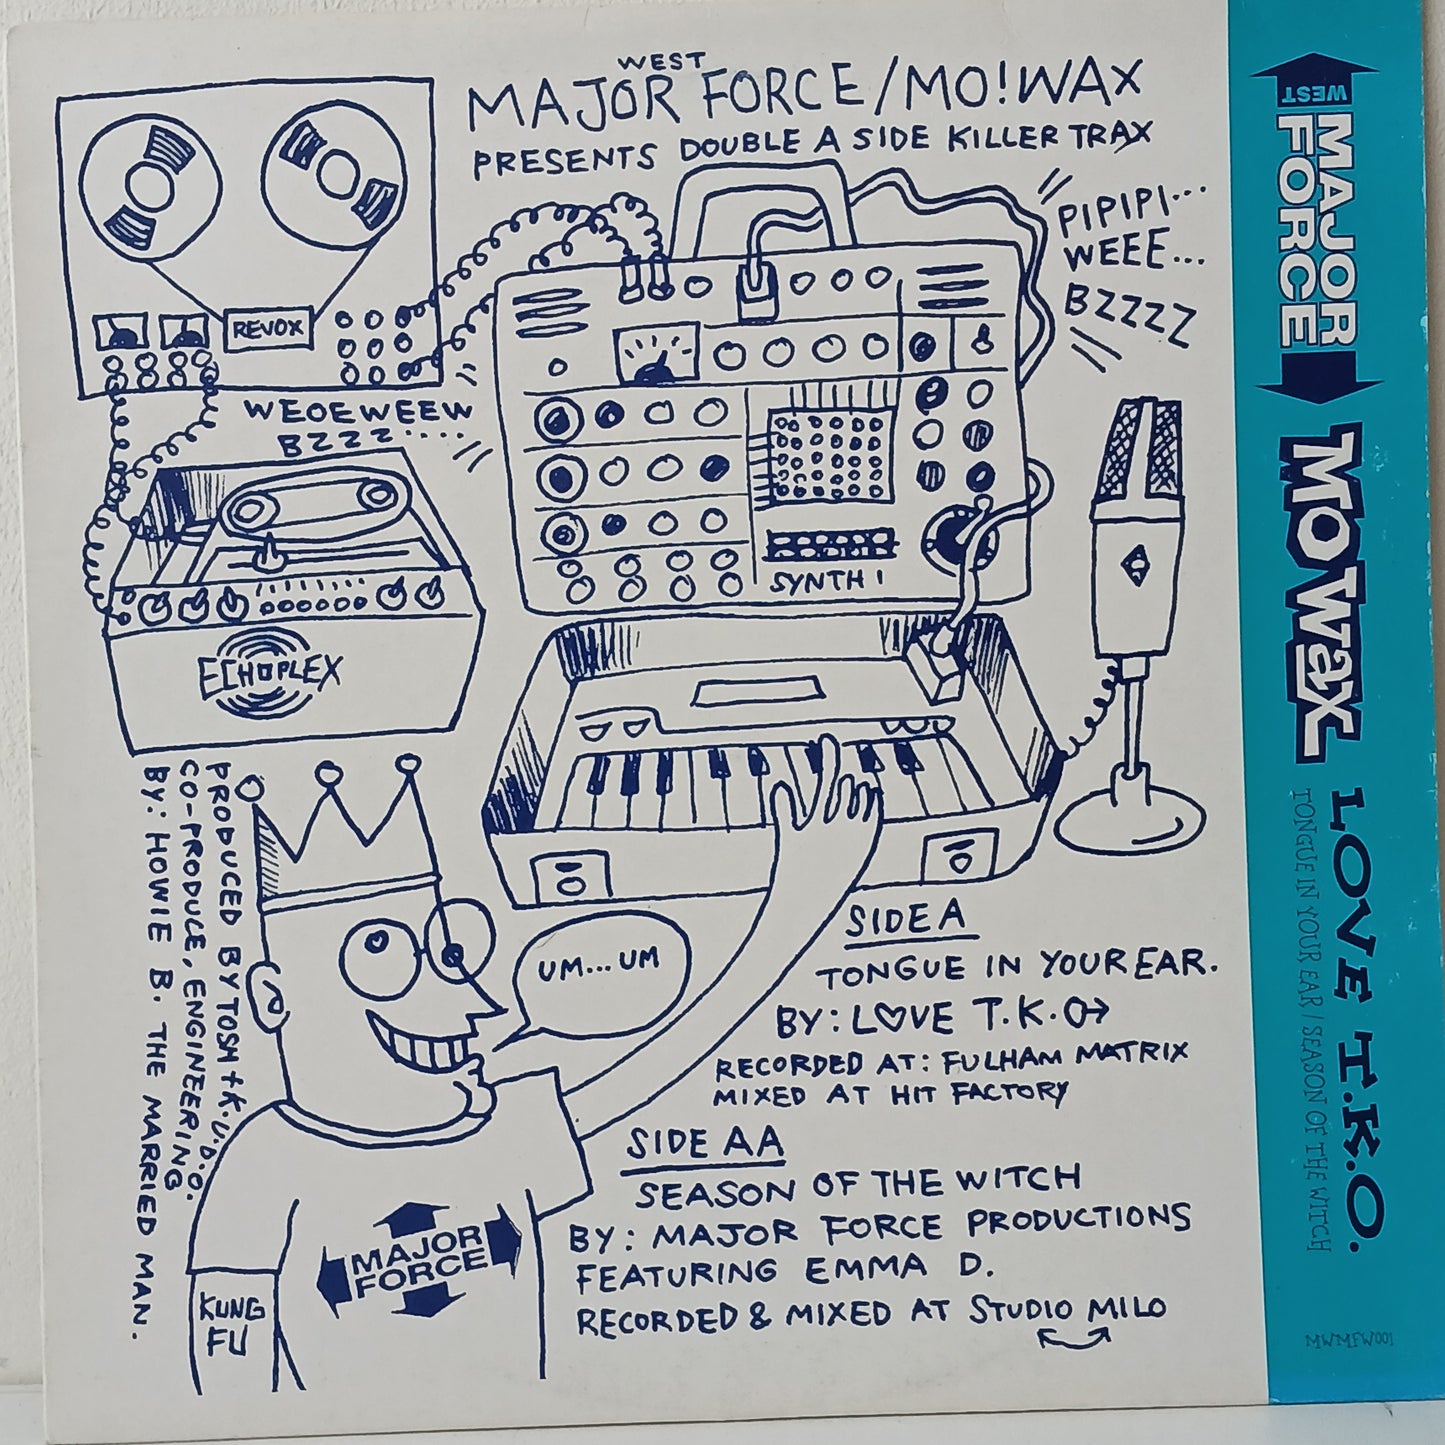 WEST
MAJOR FORCE/MO!WAX
PRESENTS DOUBLE A SIDE KILLER TRAX
PIPIPI...
WEEE...
BZZZZ
REVOX
WEOEWEEW
BZZZ....
ECHOPLEX
SYNTH I
PRODUCED BY TOSH + K.U.D.O.
CO-PRODUCE, ENGINEERING
BY: HOWIE B. THE MARRIED MAN.
UM...UM
SIDE A
TONGUE IN YOUR EAR.
BY: L♡VE T.K.O
RECORDED AT: FULHAM MATRIX
MIXED AT HIT FACTORY
SIDE AA
SEASON OF THE WITCH
BY: MAJOR FORCE PRODUCTIONS
FEATURING EMMA D.
RECORDED & MIXED AT STUDIO MILO
MAJOR
FORCE
KUNG
FU
WEST
MAJOR
FORCE
MOWAX
LOVE T.K.O.
TONGUE IN YOUR EAR / SEASON OF THE WITCH
MWMFW001